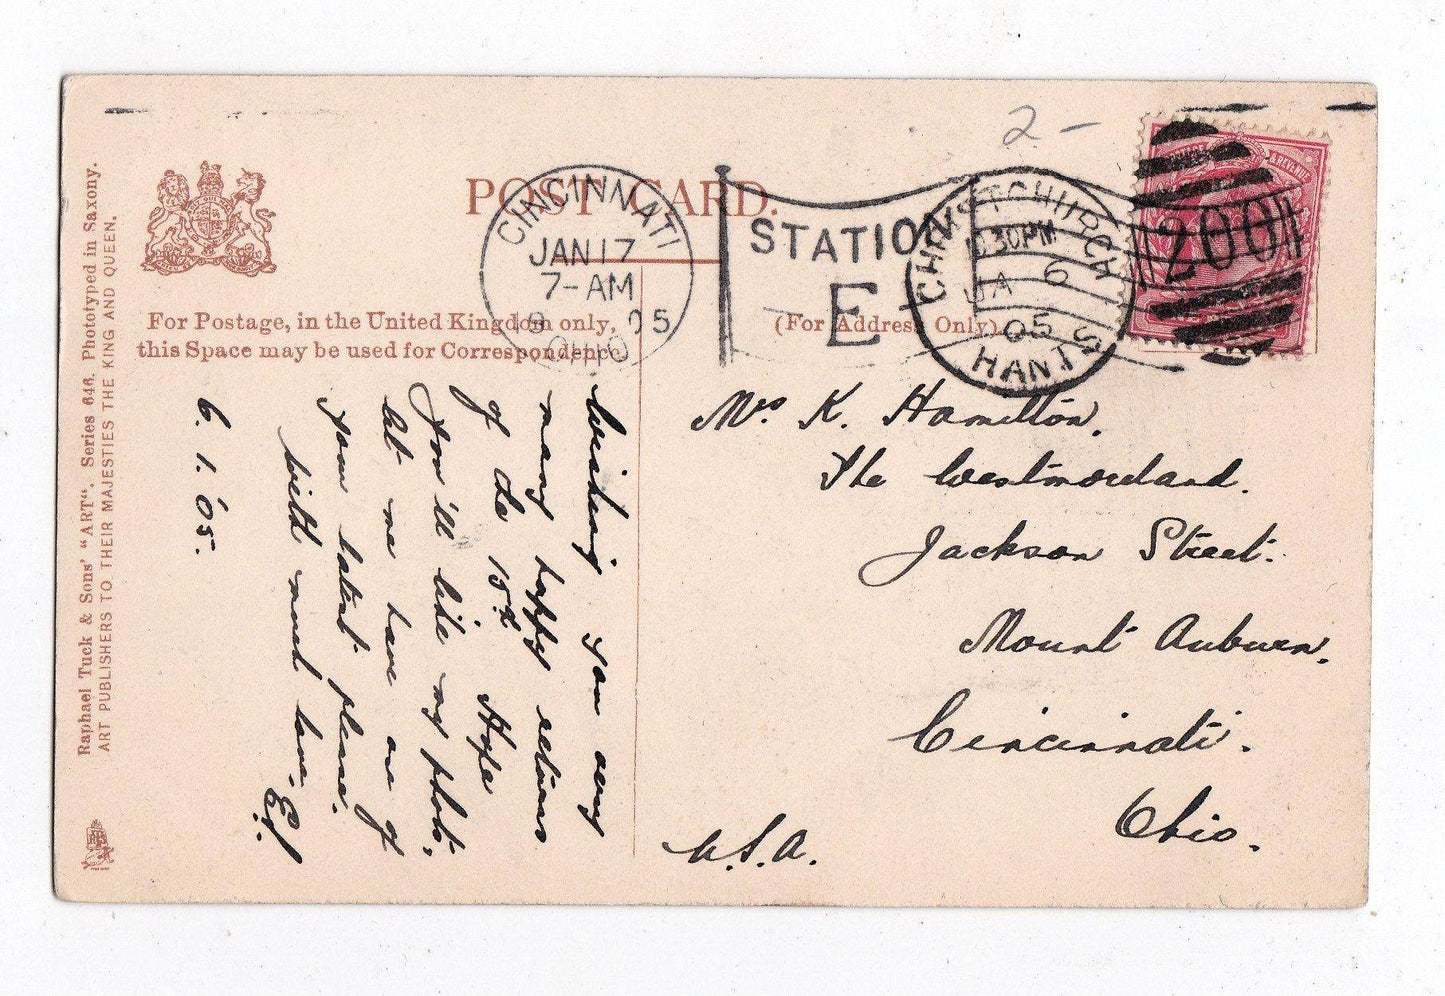 2 -
POST CARD.
CINCINNATI
JAN 17
7-AM
05
OHIO
STATION
E
CHRISTCHURCH
JA 6
05
HANTS
& REVENUE
200
For Postage, in the United Kingdom only,
this Space may be used for Correspondence.
(For Address Only).
Raphael Tuck & Sons' "ART". Series 646. Phototyped in Saxony.
ART PUBLISHERS TO THEIR MAJESTIES THE KING AND QUEEN.
Wishing you very
many happy returns
of the 15th. Hope
you'll like my photo.
Let me have one of
your latest please.
With much love. E.
6. 1. '05.
Mrs K. Hamilton,
The Westmoreland.
Jackson Street.
Mount Auburn.
Cincinnati.
Ohio.
U.S.A.